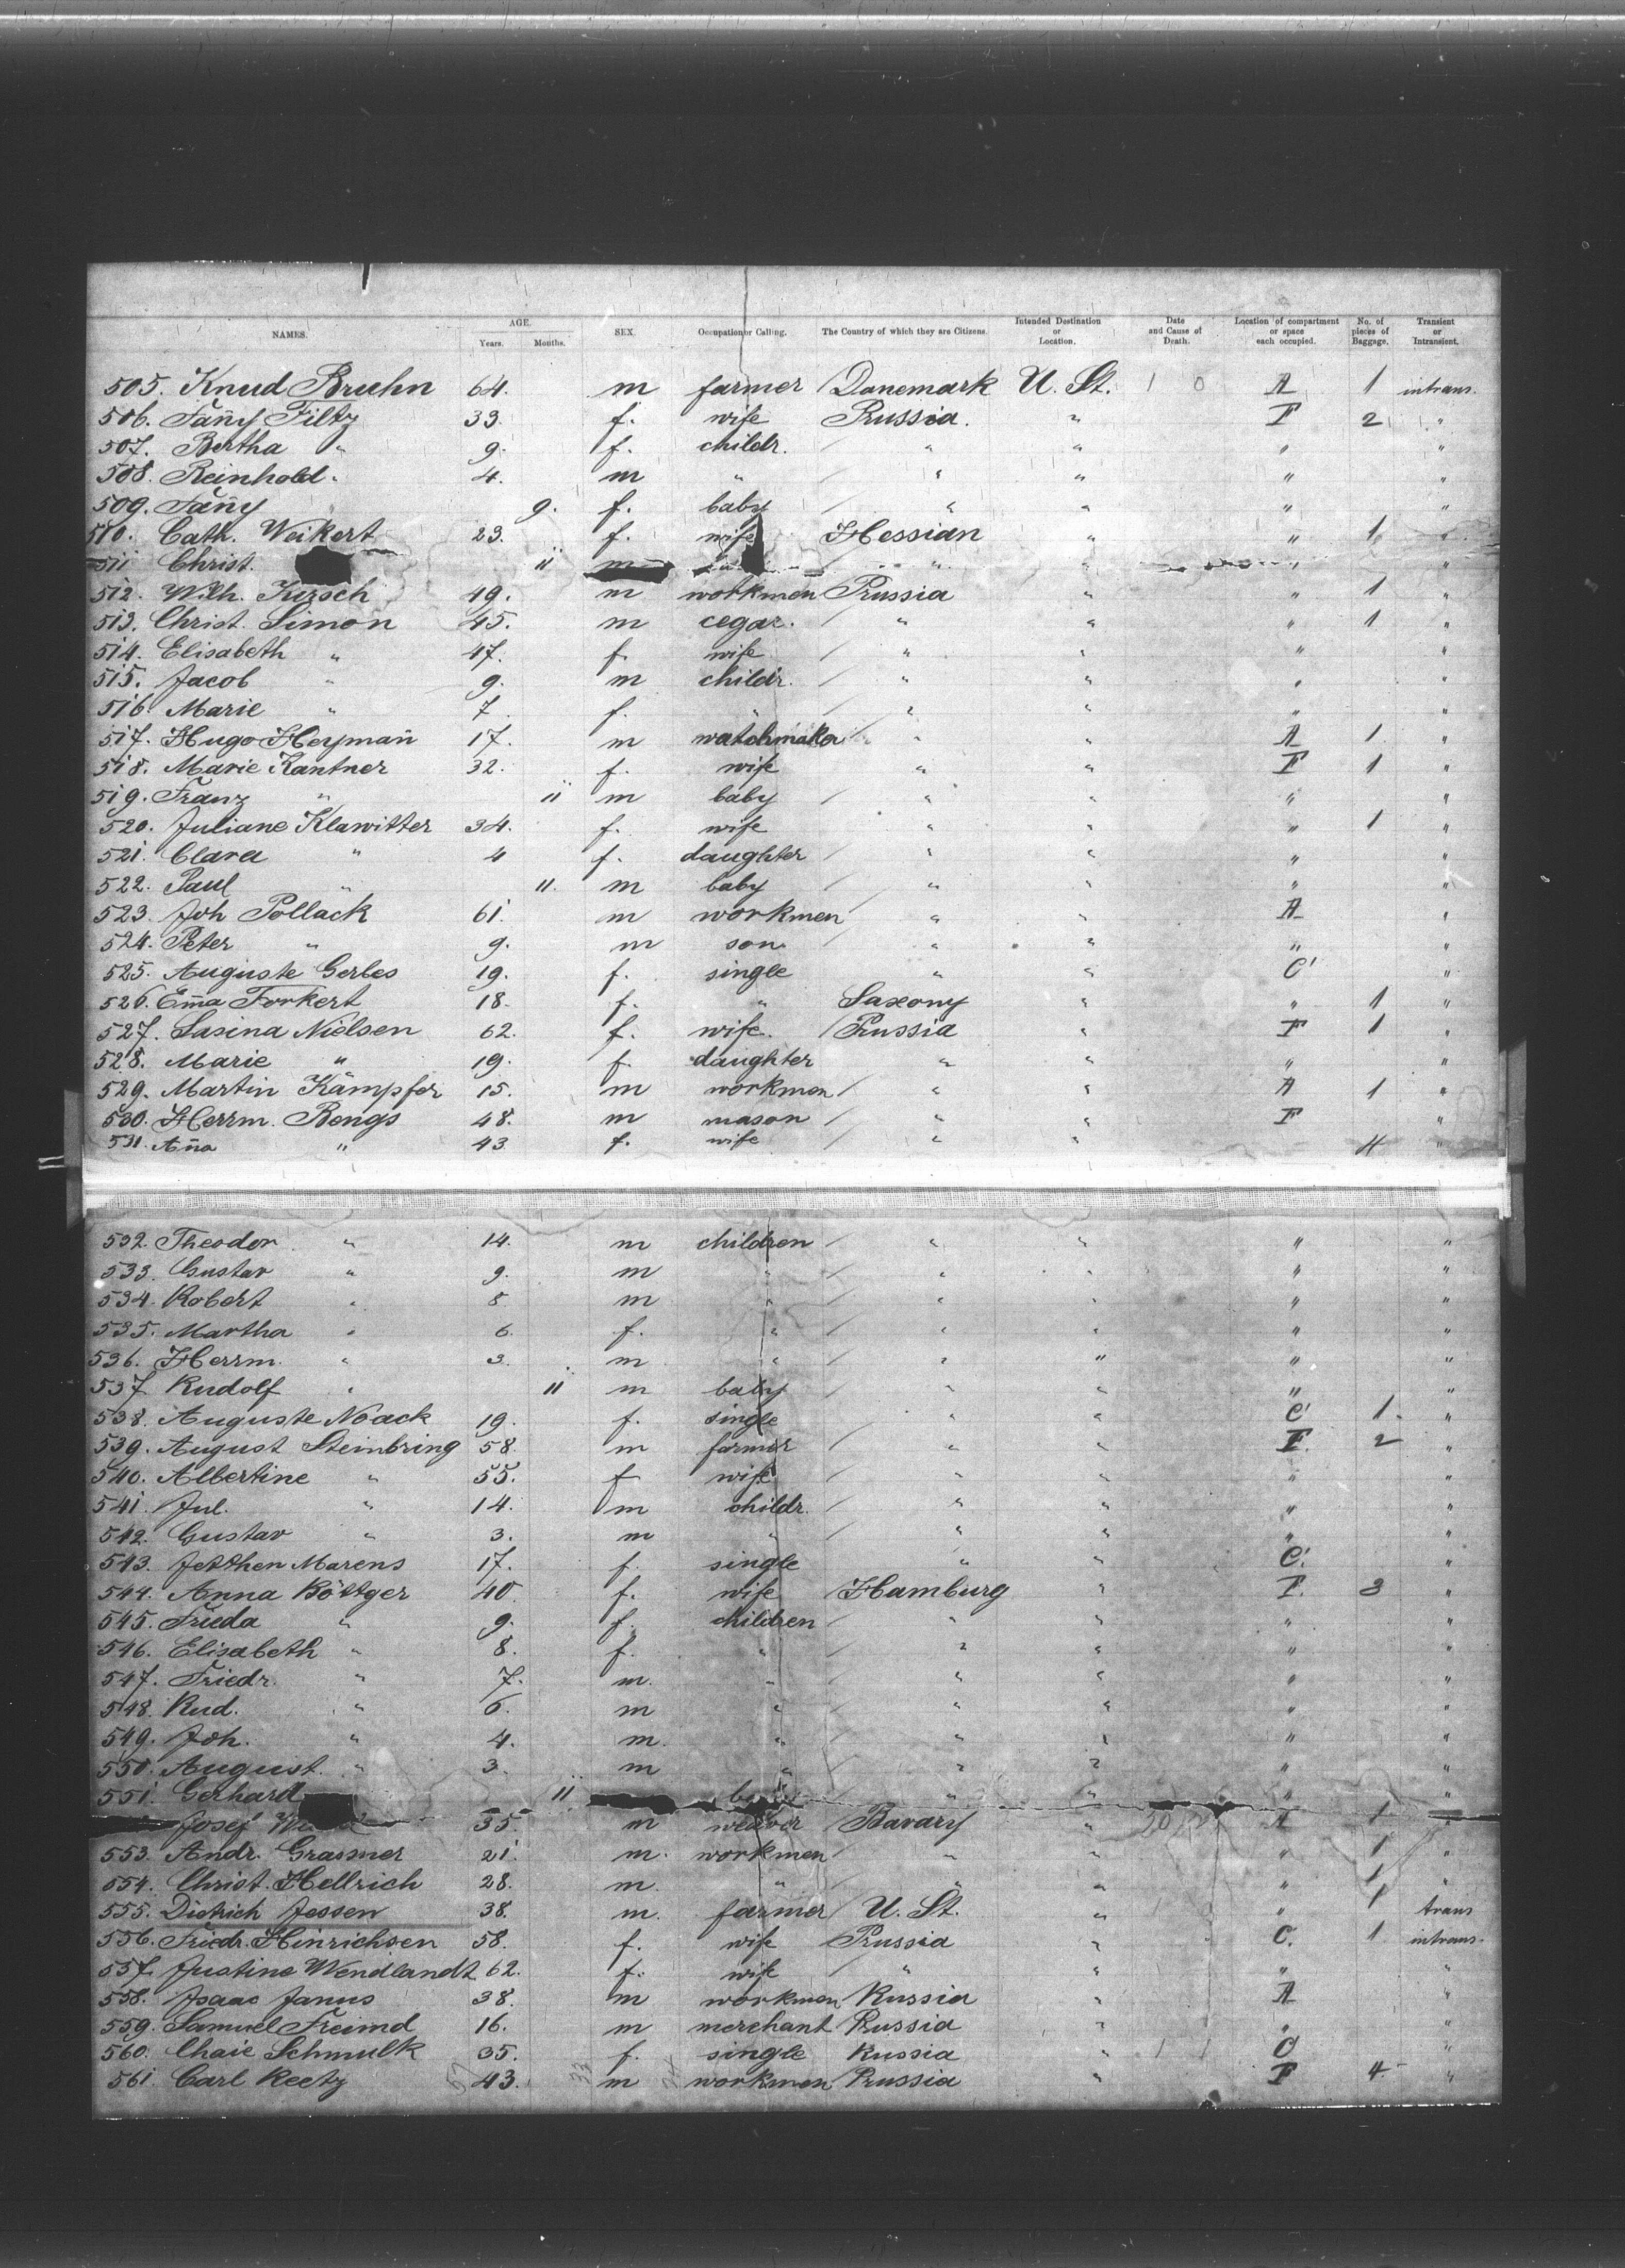 NAMES. AGE. Years. Months. SEX. Occupation or Calling. The Country of which they are Citizens. Intended Destination or Location. Date and Cause of Death. Location of compartment or space each occupied. No. of pieces of Baggage. Transient or Intransient.
505. Knud Bruhn 64. m farmer Danemark U. St. 1 0 A 1 intrans.
506. Fañy Filtz 33. f. wife Prussia. " F 2 "
507. Bertha " 9. f. childr. " " " "
508. Reinhold " 4. m " " " " "
509. Fañy " 9. f. baby " " " "
510. Cath. Weikert 23. f. wife Hessian " " 1 "
511 Christ. 11 m " " " "
512. Wilh. Kirsch 49. m workmen Prussia " " 1 "
513. Christ. Simon 45. m cegar. " " " 1 "
514. Elisabeth " 47. f. wife " " " "
515. Jacob " 9. m childr. " " " "
516. Marie " 7. f. " " " " "
517. Hugo Heymañ 17. m watchmaker " " A 1 "
518. Marie Kantner 32. f. wife " " F 1 "
519. Franz " 11 m baby " " " "
520. Juliane Klawitter 34. f. wife " " " 1 "
521. Clara " 4 f. daughter " " " "
522. Paul " 11. m baby " " " "
523. Joh Pollack 61. m workmen " " A "
524. Peter " 9. m son " " " "
525. Auguste Gerbes 19. f. single " " C' "
526. Em̃a Forkert 18. f. " Saxony " " 1 "
527. Sasina Nielsen 62. f. wife. Prussia " F 1 "
528. Marie " 19. f. daughter " " " "
529. Martin Kämpfer 15. m workmen " " A 1 "
530. Herrm. Rengs 48. m mason " " F "
531. Aña " 43. f. wife " " 4 "
532. Theodor " 14. m children " " " "
533. Gustav " 9. m " " " " "
534. Robert " 8. m " " " " "
535. Martha " 6. f. " " " " "
536. Herrm. " 3. m " " " " "
537 Rudolf " 11 m baby " " " "
538. Auguste Noack 19. f. single " " C' 1. "
539. August Steinbring 58. m farmer " " F. 2 "
540. Albertine " 55. f wife " " " "
541. Jul. " 14. m childr. " " " "
542. Gustav " 3. m " " " " "
543. Jettchen Marens 17. f. single " " C'. "
544. Anna Böttger 40 f. wife Hamburg " F. 3 "
545. Frieda " 9. f. children " " " "
546. Elisabeth " 8. f. " " " " "
547. Friedr. " 7. m. " " " " "
548. Rud. " 6. m " " " " "
549. Joh. " 4. m. " " " " "
550. August. " 3. m " " " " "
551. Gerhard 11 " " " "
Josef 35. m weaver Bavary " A 1 "
553. Andr. Grasmer 21. m. workmen " " " 1 "
554. Christ. Hellrich 28. m. " " " " 1 "
555. Dietrich Jessen 38. m. farmer U. St. " " 1 trans
556. Friedr. Hinrichsen 58. f. wife Prussia " C. 1 intrans.
557. Justine Wendlandt 62. f. wife " " " "
558. Isaac Janus 38. m workmen Russia " A "
559. Samuel Freimd 16. m merchant Russia " " "
560. Chaie Schmulk 35. f. single Russia " C' "
561 Carl Reetz 43. m workmen Prussia " F 4 "